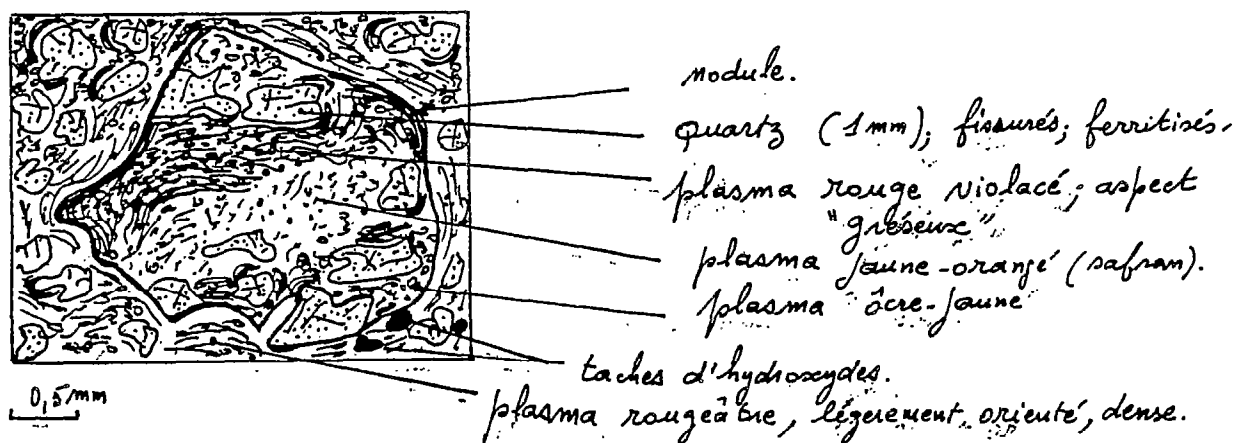 nodule.
quartz (1mm); fissurés; ferritisés.
plasma rouge violacé; aspect
"gréseux"
plasma jaune-orangé (safran).
plasma ôcre-jaune
taches d'hydroxydes.
0,5mm
plasma rougeâtre, légèrement orienté, dense.